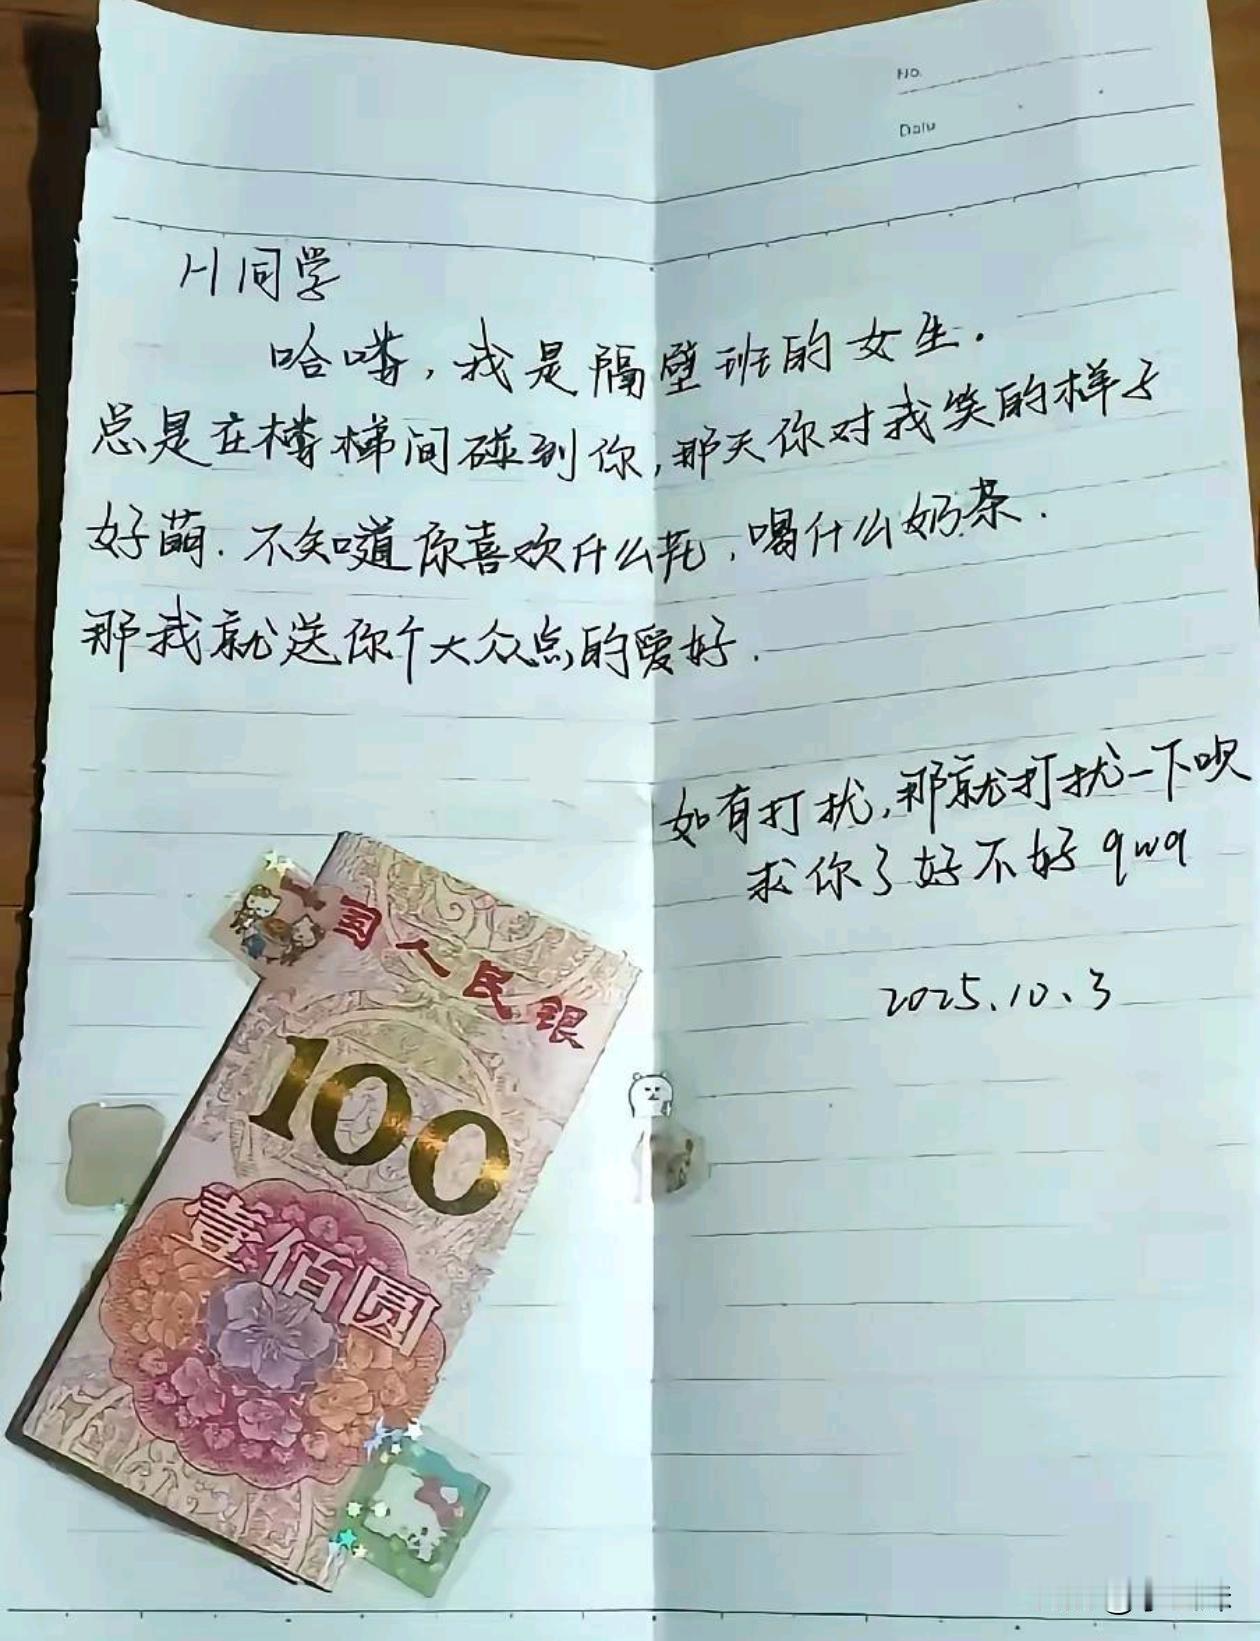 No.
Date
H同学
哈喽，我是隔壁班的女生.
总是在楼梯间碰到你，那天你对我笑的样子
好萌.不知道你喜欢什么花，喝什么奶茶.
那我就送你个大众点的爱好.
如有打扰，那就打扰一下呗
求你了好不好qwq
2025.10.3
国人民银
100
壹佰圆